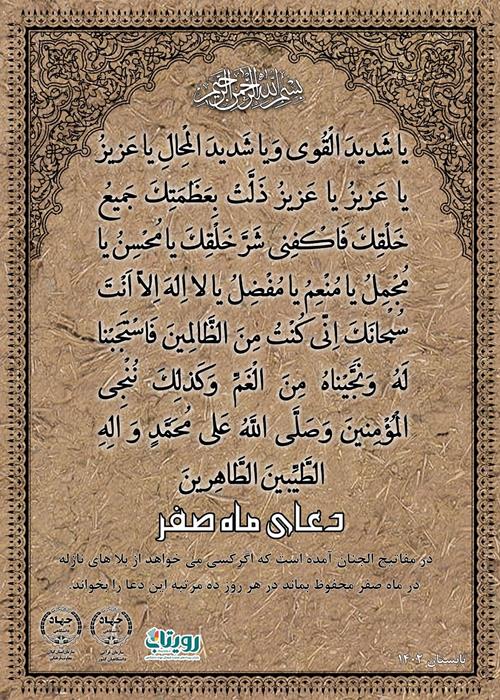 بِسْمِ اللهِ الرَّحْمٰنِ الرَّحِیمِ
یا شَدیدَ الْقُوی وَیا شَدیدَ الْمِحالِ یا عَزیزُ
یا عَزیزُ یا عَزیزُ ذَلَّتْ بِعَظَمَتِكَ جَمیعُ
خَلْقِكَ فَاكْفِنی شَرَّ خَلْقِكَ یا مُحْسِنُ یا
مُجْمِلُ یا مُنْعِمُ یا مُفْضِلُ یا لا اِلهَ اِلاّ اَنْتَ
سُبْحانَكَ اِنّی كُنْتُ مِنَ الظّالِمینَ فَاسْتَجَبْنا
لَهُ وَنَجَّیْناهُ مِنَ الْغَمِّ وَكَذلِكَ نُنْجِی
الْمُؤْمِنینَ وَصَلَّی اللّهُ عَلی مُحَمَّدٍ وَ الِهِ
الطَّیِّبینَ الطَّاهِرینَ
دعای ماه صفر
در مفاتیح الجنان آمده است که اگر کسی می خواهد از بلا های نازله
در ماه صفر محفوظ بماند در هر روز ده مرتبه این دعا را بخواند.
تابستان ۱۴۰۲
رویتاب
جهاد
دانشگاهی
سازمان قرآنی
دانشگاهیان کشور
جهاد
دانشگاهی